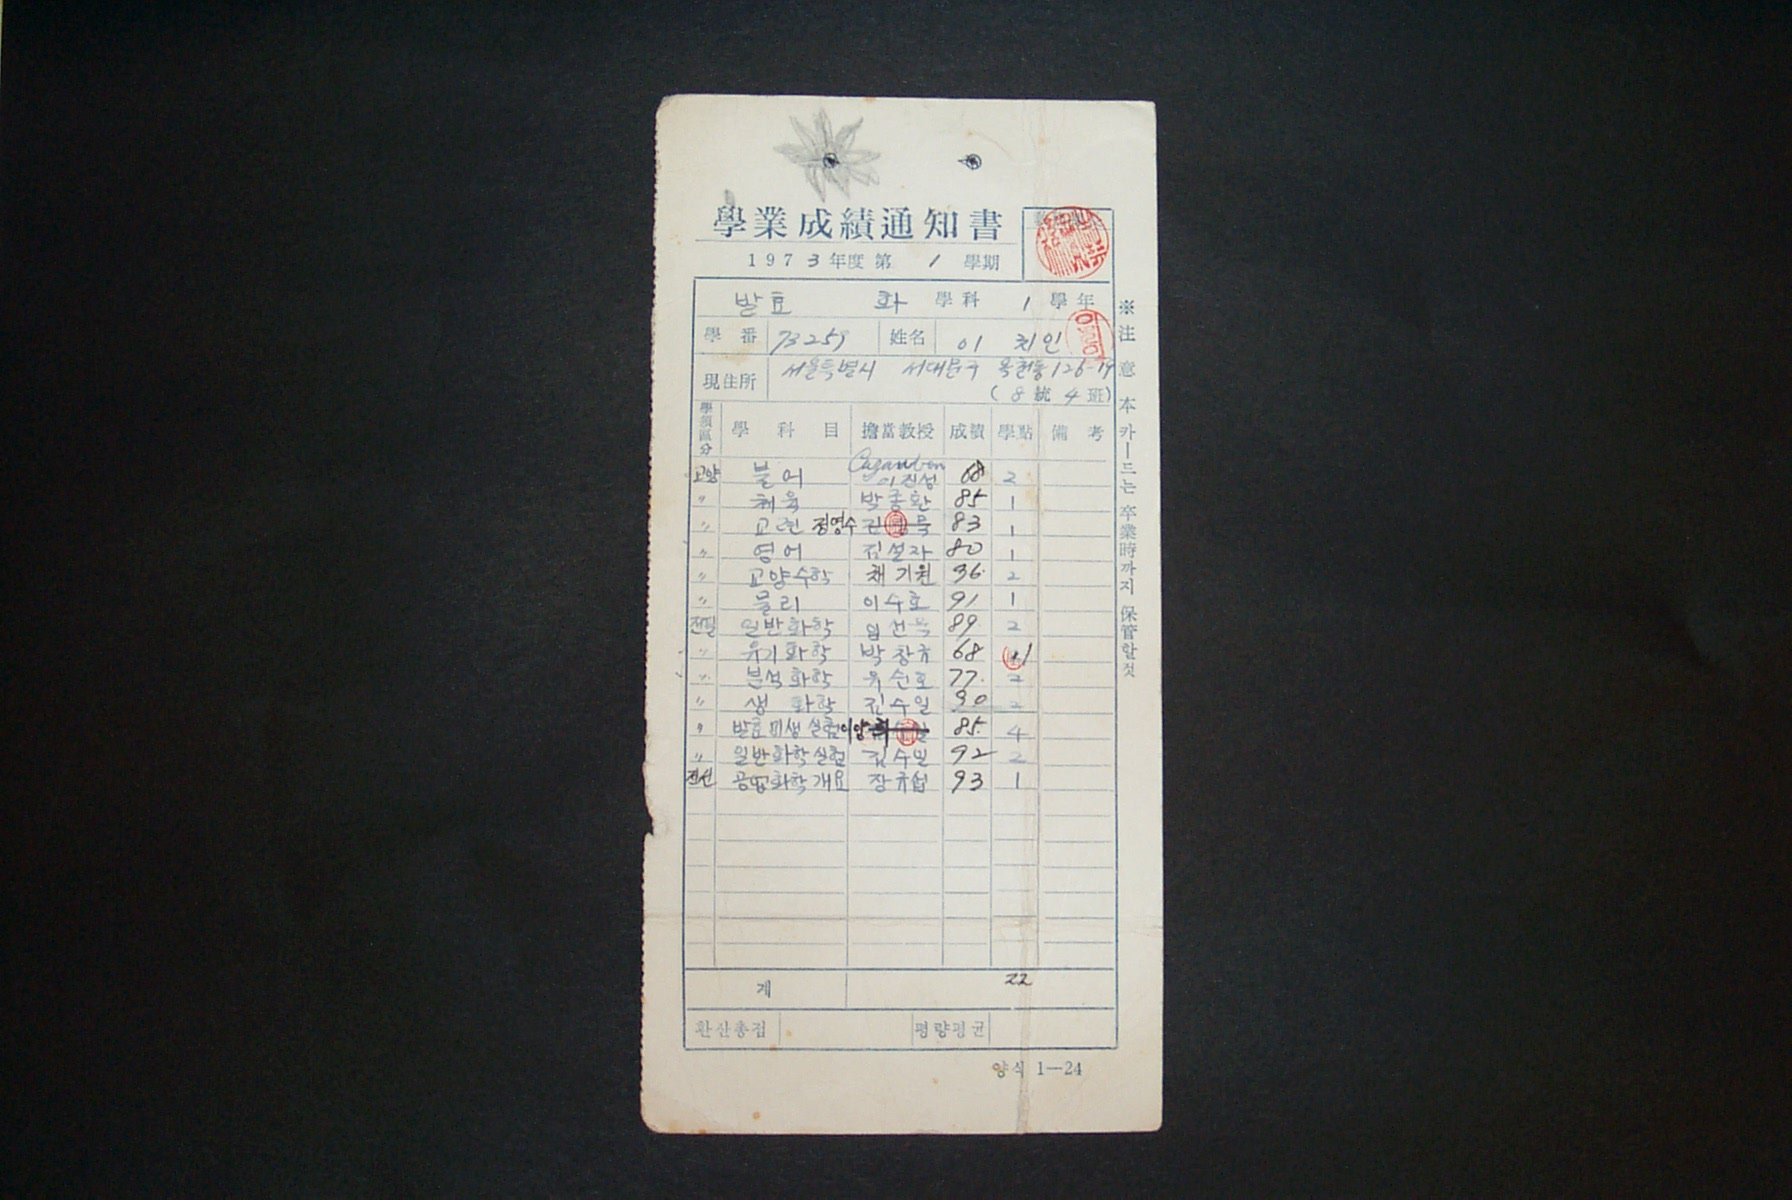 學業成績通知書
1973年度 第 1 學期
발효 화 學科 1 學年
學番 73259 姓名 이 치인
現住所 서울특별시 서대문구 옥천동 126-19
(8統 4班)
學領區分 學科目 擔當教授 成績 學點 備考
교양 불어 이진성 68 2
〃 체육 박종환 85 1
〃 교련 정영수 83 1
〃 영어 김설자 80 1
〃 교양수학 채기원 96 2
〃 물리 이수호 91 1
전필 일반화학 89 2
〃 유기화학 박창규 68 1
〃 분석화학 유순호 77 2
〃 생화학 김수일 90 2
〃 발효미생실험 이양희 85 4
〃 일반화학실험 김수일 92 2
전선 공업화학개요 장규섭 93 1
계 22
환산총점 평량평균
양식 1—24
※注意 本 카ー드는 卒業時까지 保管할것